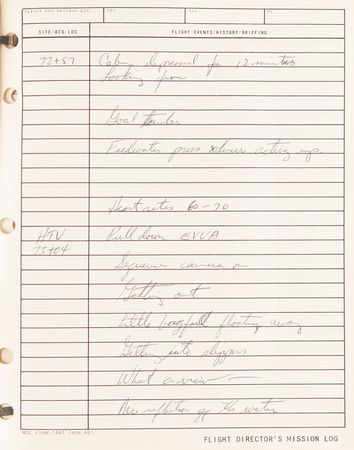 FLIGHT DIR MISSION LOG
SITE/ACQ/LOS FLIGHT EVENTS/HISTORY/BRIEFING
72+57 Cabin depressed for 12 minutes
Looking fine
Good
Feedwater press acting up.
Heart rates 60-70
HTV Pull down EVVA
73+04
Sequence camera on
Getting out
Little bag floating away
Getting into slippers
What a view —
Nice reflection off the water
MSC FORM
FLIGHT DIRECTOR'S MISSION LOG